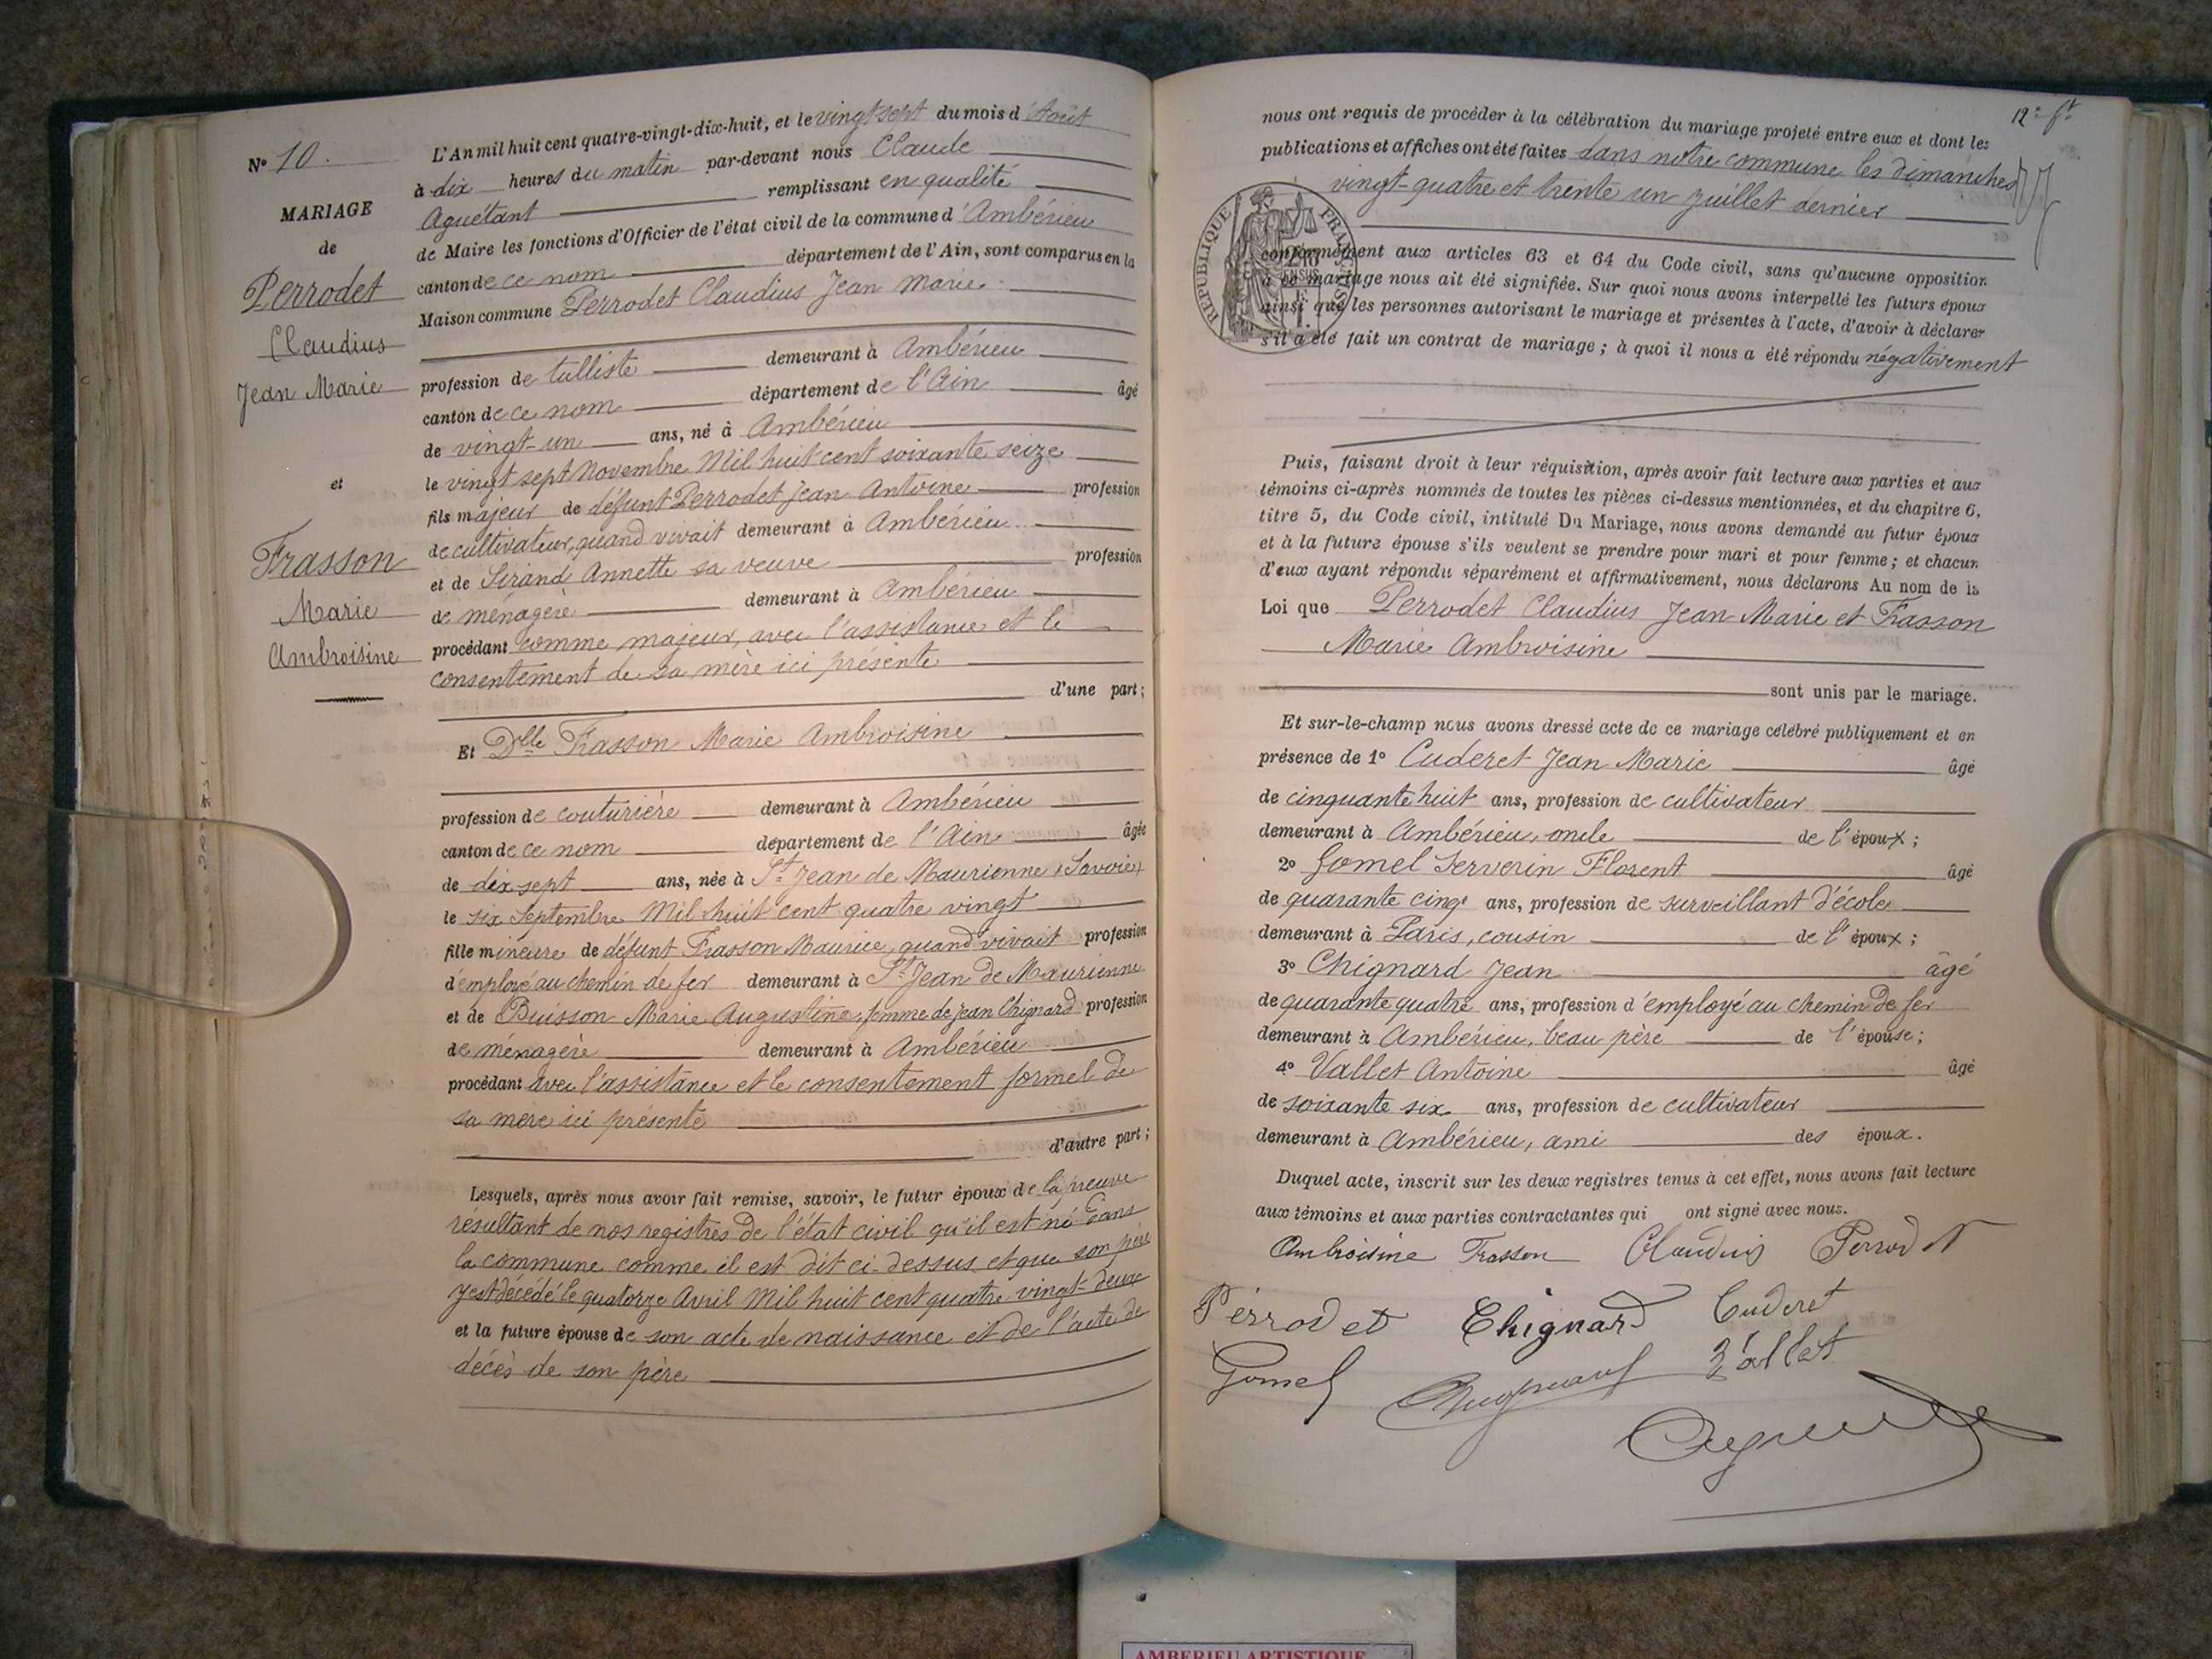 N° 10.
MARIAGE
de
Perrodet
Claudius
Jean Marie
et
Frasson
Marie
Ambroisine
L'An mil huit cent quatre-vingt-dix-huit, et le vingt sept du mois d'Août
à dix heures du matin par-devant nous Claude
Aguétant remplissant en qualité
de Maire les fonctions d'Officier de l'état civil de la commune d'Ambérieu
canton de ce nom département de l'Ain, sont comparus en la
Maison commune Perrodet Claudius Jean Marie
profession de tulliste demeurant à Ambérieu
canton de ce nom département de l'Ain âgé
de vingt-un ans, né à Ambérieu
le vingt sept Novembre Mil huit cent soixante seize
fils majeur de défunt Perrodet Jean Antoine profession
de cultivateur, quand vivait demeurant à Ambérieu
et de Sirand Annette sa veuve profession
de ménagère demeurant à Ambérieu
procédant comme majeur, avec l'assistance et le
consentement de sa mère ici présente
d'une part;
Et Dlle Frasson Marie Ambroisine
profession de couturière demeurant à Ambérieu
canton de ce nom département de l'Ain âgée
de dix sept ans, née à St Jean de Maurienne (Savoie)
le six Septembre Mil huit cent quatre vingt
fille mineure de défunt Frasson Maurice, quand vivait profession
d'employé au chemin de fer demeurant à St Jean de Maurienne
et de Buisson Marie Augustine, femme de Jean Chignard profession
de ménagère demeurant à Ambérieu
procédant avec l'assistance et le consentement formel de
sa mère ici présente
d'autre part;
Lesquels, après nous avoir fait remise, savoir, le futur époux de la preuve
résultant de nos registres de l'état civil qu'il est né dans
la commune comme il est dit ci-dessus et que son père
y est décédé le quatorze Avril Mil huit cent quatre vingt-deux
et la future épouse de son acte de naissance et de l'acte de
décès de son père
12e ft
nous ont requis de procéder à la célébration du mariage projeté entre eux et dont les
publications et affiches ont été faites dans notre commune les dimanches
vingt-quatre et trente un Juillet dernier
RÉPUBLIQUE FRANÇAISE
conformément aux articles 63 et 64 du Code civil, sans qu'aucune opposition
à ce mariage nous ait été signifiée. Sur quoi nous avons interpellé les futurs époux
ainsi que les personnes autorisant le mariage et présentes à l'acte, d'avoir à déclarer
s'il a été fait un contrat de mariage; à quoi il nous a été répondu négativement
Puis, faisant droit à leur réquisition, après avoir fait lecture aux parties et aux
témoins ci-après nommés de toutes les pièces ci-dessus mentionnées, et du chapitre 6,
titre 5, du Code civil, intitulé Du Mariage, nous avons demandé au futur époux
et à la future épouse s'ils veulent se prendre pour mari et pour femme; et chacun
d'eux ayant répondu séparément et affirmativement, nous déclarons Au nom de la
Loi que Perrodet Claudius Jean Marie et Frasson
Marie Ambroisine
sont unis par le mariage.
Et sur-le-champ nous avons dressé acte de ce mariage célébré publiquement et en
présence de 1° Cuderet Jean Marie âgé
de cinquante huit ans, profession de cultivateur
demeurant à Ambérieu, oncle de l'époux;
2° Gomel Serverin Florent âgé
de quarante cinq ans, profession de surveillant d'école
demeurant à Paris, cousin de l'époux;
3° Chignard Jean âgé
de quarante quatre ans, profession d'employé au chemin de fer
demeurant à Ambérieu, beau père de l'épouse;
4° Vallet Antoine âgé
de soixante six ans, profession de cultivateur
demeurant à Ambérieu, ami des époux.
Duquel acte, inscrit sur les deux registres tenus à cet effet, nous avons fait lecture
aux témoins et aux parties contractantes qui ont signé avec nous.
Ambroisine Frasson Claudius Perrodet
Perrodet Chignard Cuderet
Gomel Vallet
AMBERIEU ARTISTIQUE